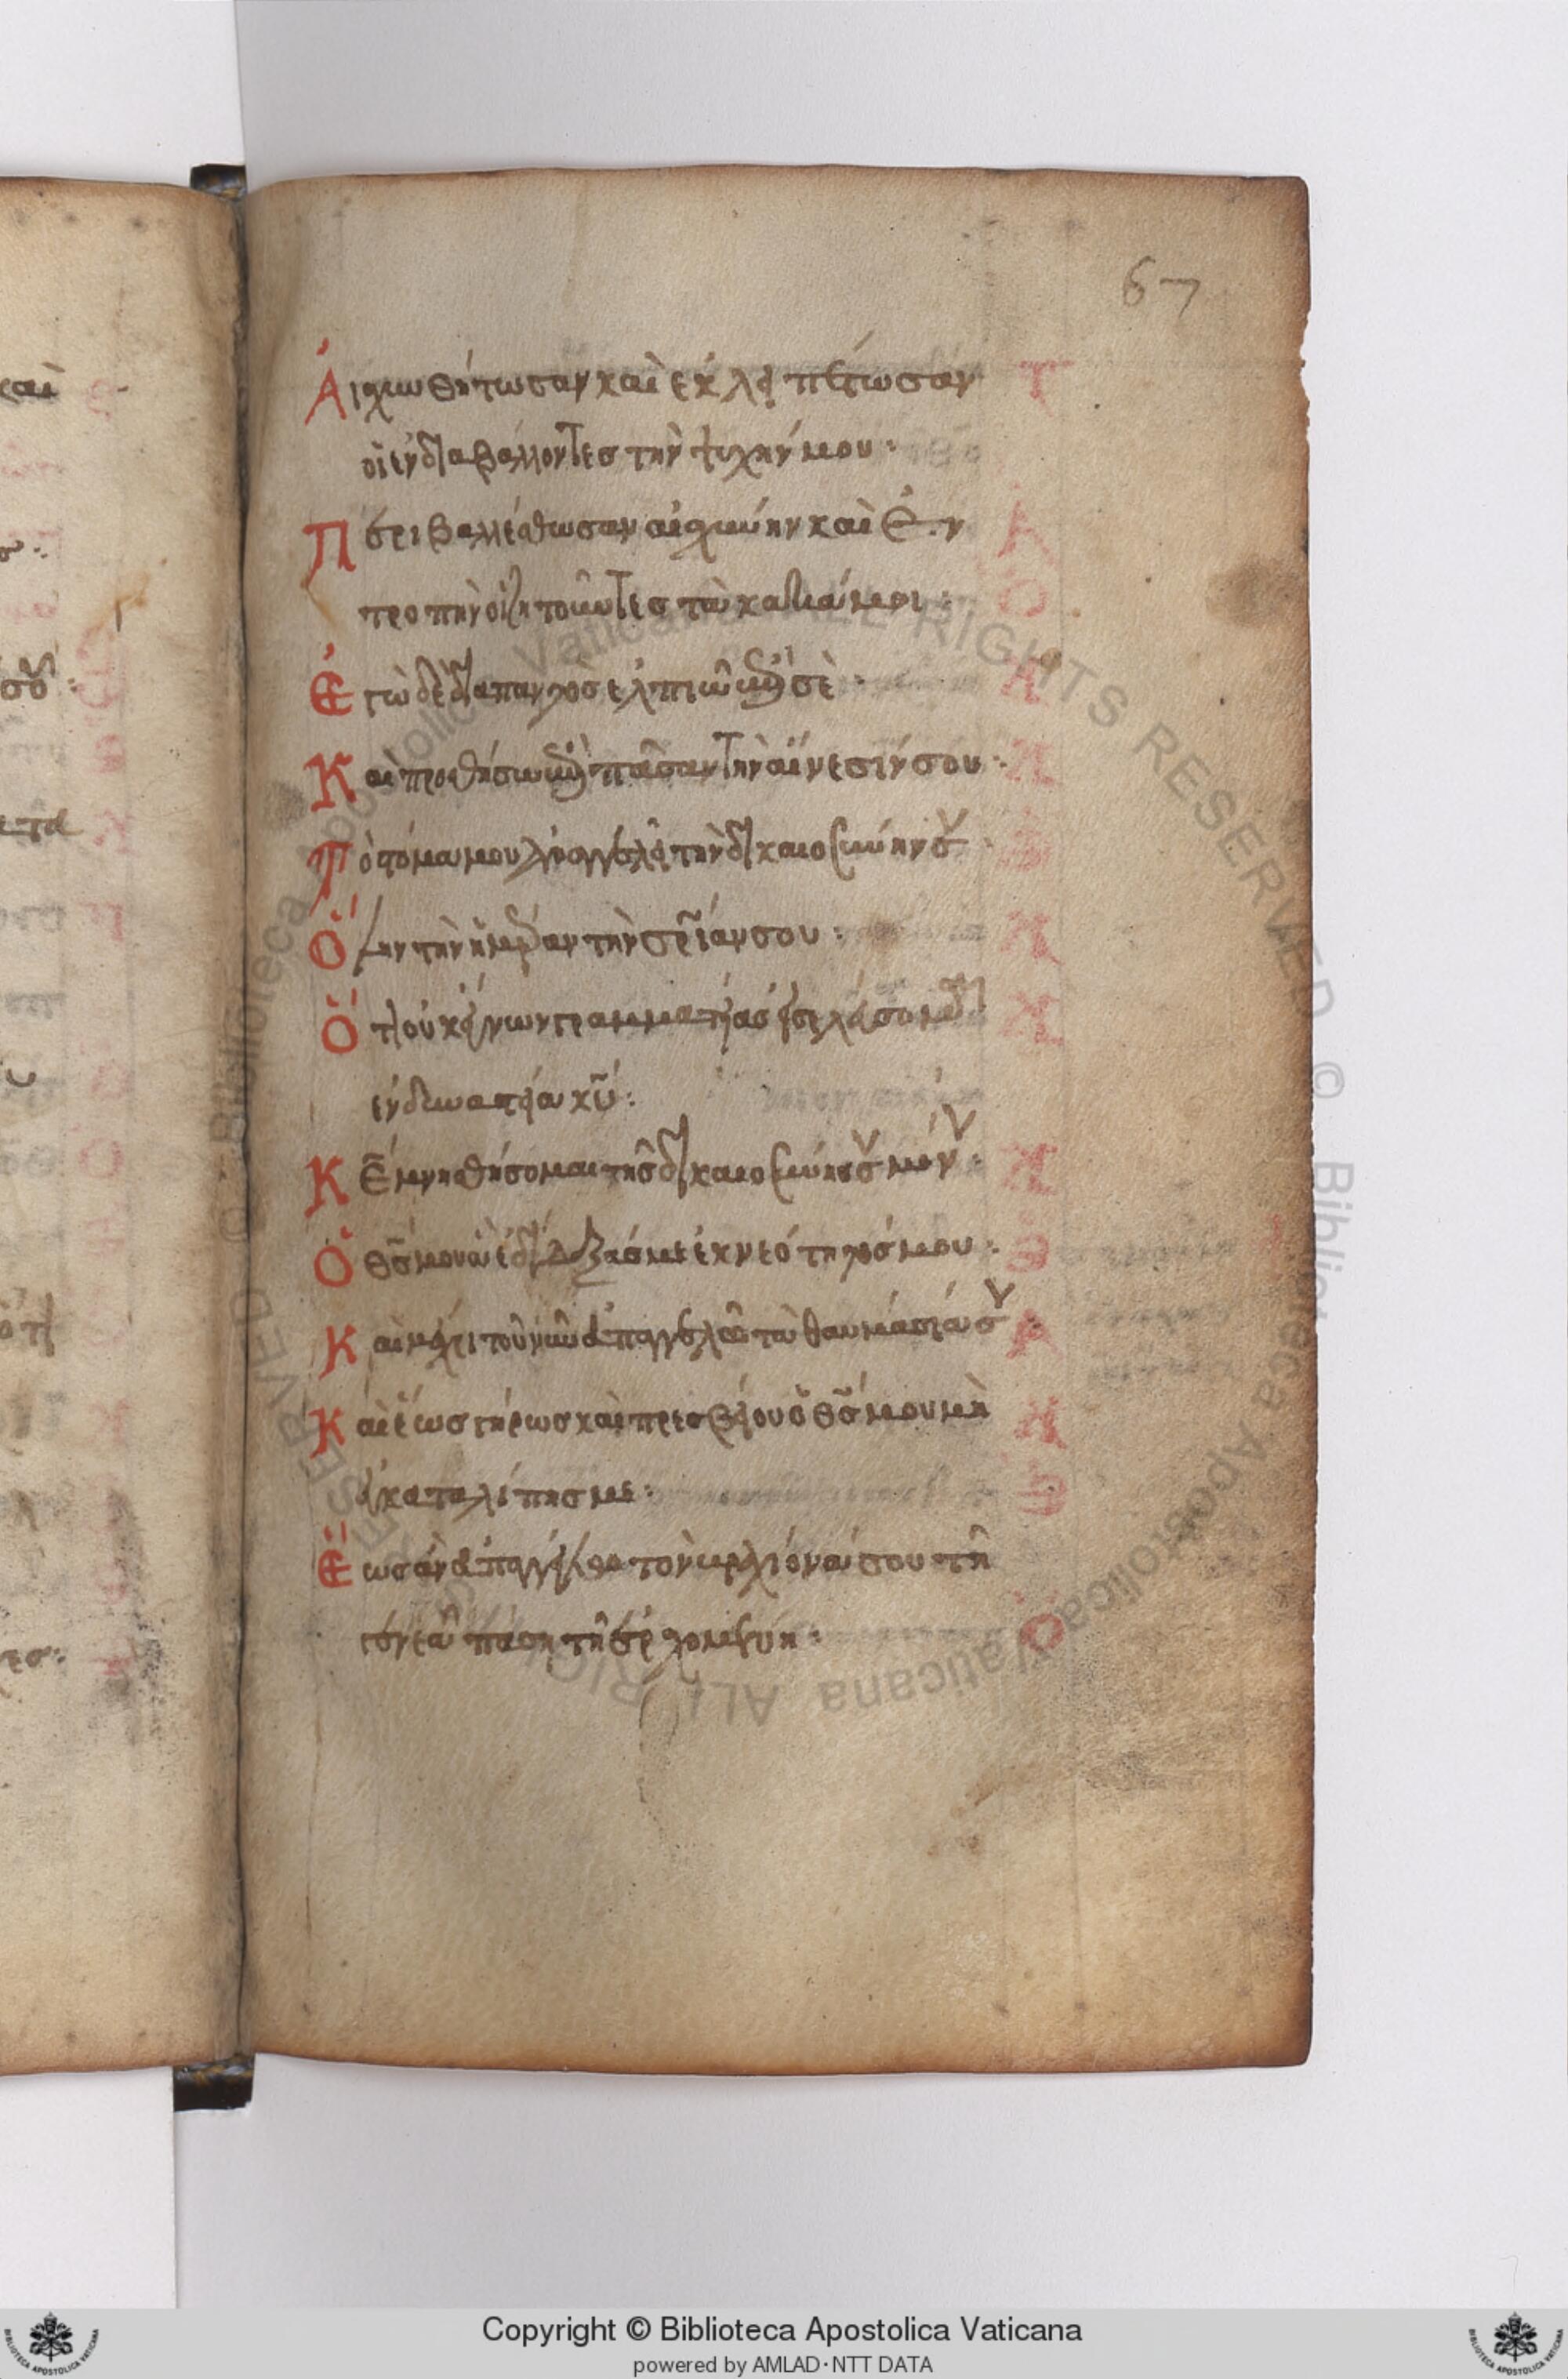 67
Αἰσχυνθήτωσαν καὶ ἐκλειπέτωσαν
οἱ ἐνδιαβάλλοντες τὴν ψυχήν μου:
Περιβαλλέσθωσαν αἰσχύνην καὶ ἐν
τροπὴν οἱ ζητοῦντες τὰ κακά μοι:
Ἐγὼ δὲ διαπαντὸς ἐλπιῶ ἐπὶ σὲ:
Καὶ προσθήσω ἐπὶ πᾶσαν τὴν αἴνεσίν σου:
Τὸ στόμα μου ἀναγγελεῖ τὴν δικαιοσύνην σου:
Ὅλην τὴν ἡμέραν τὴν σρίαν σου:
Ὅτι οὐκ ἔγνων γραμματείας εἰσελεύσομαι
ἐν δυναστείᾳ κυ:
Κε μνησθήσομαι τῆς δικαιοσύνης σου μόνου:
Ὁ θς μου ἃ ἐδίδαξάς με ἐκ νεότητός μου:
Καὶ μέχρι τοῦ νῦν ἀπαγγελῶ τὰ θαυμάσιά σου:
Καὶ ἕως γήρως καὶ πρεσβείου ὁ θς μου μὴ
ἐγκαταλίπῃς με:
Ἕως ἂν ἀπαγγείλω τὸν βραχίονά σου τῇ
γενεᾷ πάσῃ τῇ ἐρχομένῃ:
Copyright © Biblioteca Apostolica Vaticana
powered by AMLAD·NTT DATA